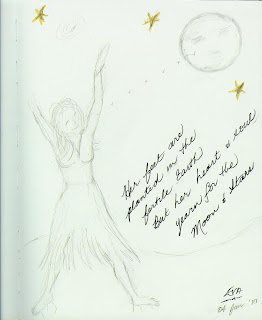 Her feet are
planted in the
fertile Earth
But her heart & soul
yearn for the
Moon & Stars
04 Jan